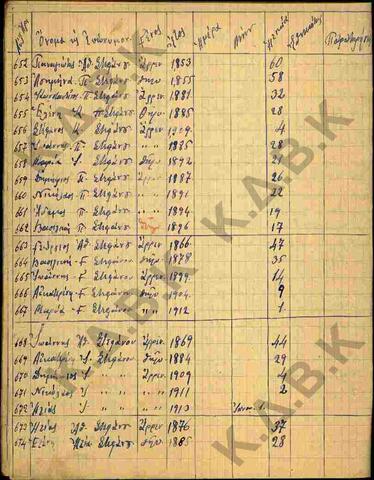 Αυξ. Αρ. Ὄνομα κ Ἐπώνυμον Γένος Ἔτος Ἡμέρα Μὴν Ἡλικία Παρατηρήσεις
652 Παναγιώτης Στεφάνου Ἄρρεν 1853 60
653 Π. Στεφάνου Θῆλυ 1855 58
654 Κωνσταντῖνος Π. Στεφάνου Ἄρρεν 1881 32
655 Ἑλένη Στεφάνου Θῆλυ 1885 28
656 Στέφανος Κ. Στεφάνου Ἄρρεν 1909 4
657 Ἰωάννης Π. Στεφάνου " " 1885 28
658 Μαρία Ἰ. Στεφάνου Θῆλυ 1892 21
659 Δημήτριος Π. Στεφάνου Ἄρρεν 1887 26
660 Νικόλαος Π. Στεφάνου " " 1891 22
661 Π. Στεφάνου " " 1894 19
662 Βασιλικὴ Π. Στεφάνου 1896 17
663 Γεώργιος Στεφάνου Ἄρρεν 1866 47
664 Βασιλικὴ Γ. Στεφάνου Θῆλυ 1878 35
665 Ἰωάννης Γ. Στεφάνου Ἄρρεν 1899 14
666 Αἰκατερίνη Γ. Στεφάνου Θῆλυ 1904 9
667 Μαρία Γ. Στεφάνου " " 1912 1
668 Ἰωάννης Στεφάνου Ἄρρεν 1869 44
669 Αἰκατερίνη Ἰ. Στεφάνου Θῆλυ 1884 29
670 Δημήτριος Ἰ. " " Ἄρρεν 1909 4
671 Νικόλαος Ἰ " " " " 1911 2
672 Ἠλίας Ἰ " " " " 1913 1
673 Ἠλίας Στεφάνου Ἄρρεν 1876 37
674 Ἑλένη Ἠλία Στεφάνου Θῆλυ 1885 28
Κ.Δ.Β.Κ
Κ.Δ.Β.Κ
Κ.Δ.Β.Κ